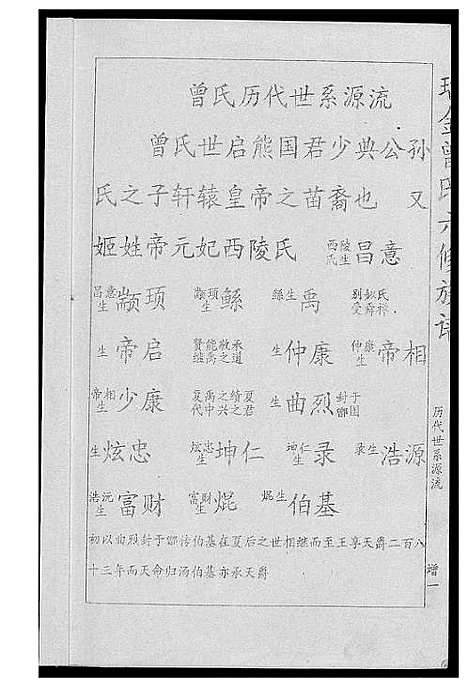 曾氏历代世系源流
曾氏世启熊国君少典公孙又
氏之子轩辕皇帝之苗裔也
姬姓帝元妃西陵氏 西陵氏生 昌意
昌意生 颛顼 颛顼生 鲧 鲧生 禹 受舜
生 帝启 贤能敬承继禹之道 生 仲康 仲康生 帝相
帝相生 少康 夏禹之绩夏代中兴之君 生 曲烈 封于鄫国
生 炫忠 炫忠生 坤仁 坤仁生 录 录生 浩源
浩沅生 富财 富财生 焜 焜生 伯基
初以曲烈封于鄫传伯基在夏后之世相继而至王享天爵二百八
十三年而天命归汤伯基亦承天爵
瑞金曾氏六修族谱
历代世系源流
增一